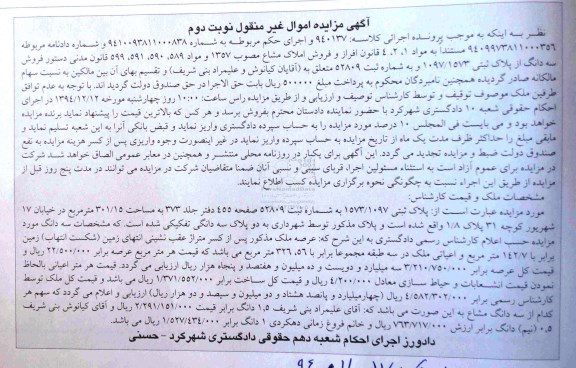 آگهی مزایده اموال غیر منقول نوبت دوم
نظر به اینکه به موجب پرونده اجرائی کلاسه: ۹۴۰۱۳۷ و اجرای حکم مربوطه به شماره ۹۴۱۰۰۹۳۸۱۱۰۰۰۸۳۸ و شماره دادنامه مربوطه
۹۴۰۹۹۷۳۸۱۱۰۰۰۳۵۶ مستنداً به مواد ۱، ۲، ۴ قانون افراز و فروش املاک مشاع مصوب ۱۳۵۷ و مواد ۵۸۹، ۵۹۰، ۵۹۱، ۵۹۹ قانون مدنی دستور فروش
سه دانگ از پلاک ثبتی ۱۰۹۷/۱۵۷۳ و به شماره ثبت ۵۲۸۰۹ متعلق به (آقایان کیانوش و علیمراد بنی شریف) و تقسیم بهای آن بین مالکین به نسبت سهام
مالکانه صادر گردیده همچنین نامبردگان محکوم به پرداخت مبلغ ۵۰۰۰۰۰ ریال بابت حق الاجرا در حق صندوق دولت گردیده اند. با توجه به عدم توافق
طرفین ملک موصوف توقیف و توسط کارشناس توصیف و ارزیابی و از طریق مزایده راس ساعت: ۱۰:۰۰ روز چهارشنبه مورخه ۱۳۹۴/۱۲/۱۲ در اجرای
احکام حقوقی شعبه ۱۰ دادگستری شهرکرد با حضور نماینده دادستان محترم بفروش برسد و هر کس که بالاترین قیمت را پیشنهاد نماید برنده مزایده
خواهد بود و می بایست فی المجلس ۱۰ درصد مورد مزایده را به حساب سپرده دادگستری واریز نماید و فیش بانکی آنرا به این شعبه تسلیم نماید و
مابقی مبلغ را حداکثر ظرف مدت یک ماه از تاریخ مزایده به حساب سپرده واریز نماید در غیر اینصورت وجوه واریزی پس از کسر هزینه مزایده به نفع
صندوق دولت ضبط و مزایده تجدید می گردد. این آگهی برای یکبار در روزنامه محلی منتشر و همچنین در معابر عمومی الصاق خواهد شد شرکت
در مزایده برای عموم آزاد است به استثناء مسئولین اجرا، قربای سببی و نسبی آنان ضمنا متقاضیان شرکت در مزایده می توانند در مدت پنج روز قبل از
مزایده از طریق این اجراء نسبت به چگونگی نحوه برگزاری مزایده کسب اطلاع نمایند.
مشخصات ملک و قیمت کارشناس:
مورد مزایده عبارت است از: پلاک ثبتی ۱۵۷۳/۱۰۹۷ به شماره ثبت ۵۲۸۰۹ صفحه ۴۵۵ دفتر جلد ۳۷۳ به مساحت ۳۰۱/۱۵ مترمربع در خیابان ۱۷
شهریور کوچه ۳۱ پلاک ۱/۸ واقع شده است و پلاک مذکور توسط شهرداری به دو پلاک سه دانگی تفکیکی شده است. که مشخصات سه دانگ مورد
مزایده حسب اعلام کارشناس رسمی دادگستری به این شرح که: عرصه ملک مذکور پس از کسر متراژ عقب نشینی انتهای زمین (شکست انتهای) زمین
برابر با ۱۴۲/۷ متر مربع و اعیانی ملک در سه طبقه مجموعاً برابر با ۳۲۶،۵۶ متر مربع می باشد که قیمت هر متر مربع عرصه برابر ۲۲/۵۰۰/۰۰۰ ریال و
قیمت کل عرصه برابر ۳/۲۱۰/۷۵۰/۰۰۰ سه میلیارد و دویست و ده میلیون و هفتصد و پنجاه هزار ریال ارزیابی می گردد. قیمت هر متر اعیانی بالحاظ
نمودن قیمت انشعابات و حیاط سازی معادل ۴/۲۰۰/۰۰۰ ریال و قیمت کل ساخت برابر ۱/۳۷۱/۵۵۲/۰۰۰ ریال می باشد و قیمت کل ملک توسط
کارشناس رسمی برابر ۴/۵۸۲/۳۰۲/۰۰۰ ریال (چهارمیلیارد و پانصد هشتاد و دو میلیون و سیصد و دو هزار ریال) ارزیابی و اعلام می گردد که سهم هر
کدام از سه دانگ مشاع به این صورت می باشد که: آقای علیمراد بنی شریف ۱،۵ دانگ برابر قیمت ۲/۲۹۱/۱۵۱/۰۰۰ ریال و آقای کیانوش بنی شریف
۰،۵ (نیم) دانگ برابر ارزش ۷۶۳/۷۱۷/۰۰۰ ریال و خانم فروغ زمانی دهکردی ۱ دانگ برابر ۱/۵۲۷/۴۳۴/۰۰۰ ریال می باشد.
دادورز اجرای احکام شعبه دهم حقوقی دادگستری شهرکرد - حسنی